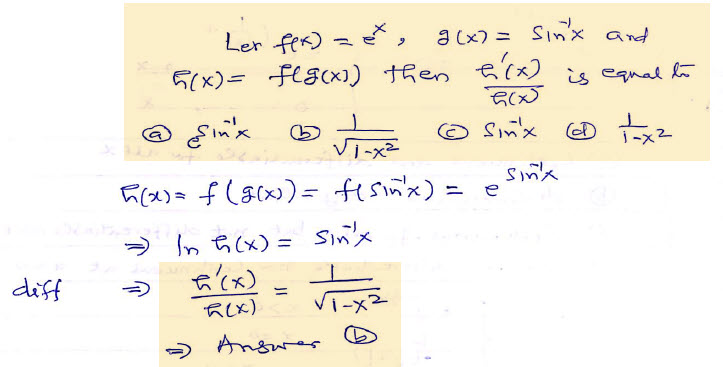 Let f(x) = e^x, g(x) = Sin⁻¹x and
h(x) = f(g(x)) then h'(x)/h(x) is equal to
(a) e^{Sin⁻¹x} (b) 1/√(1-x²) (c) Sin⁻¹x (d) 1/(1-x²)
h(x) = f(g(x)) = f(Sin⁻¹x) = e^{Sin⁻¹x}
⇒ ln h(x) = Sin⁻¹x
diff ⇒ h'(x)/h(x) = 1/√(1-x²)
⇒ Answer (b)